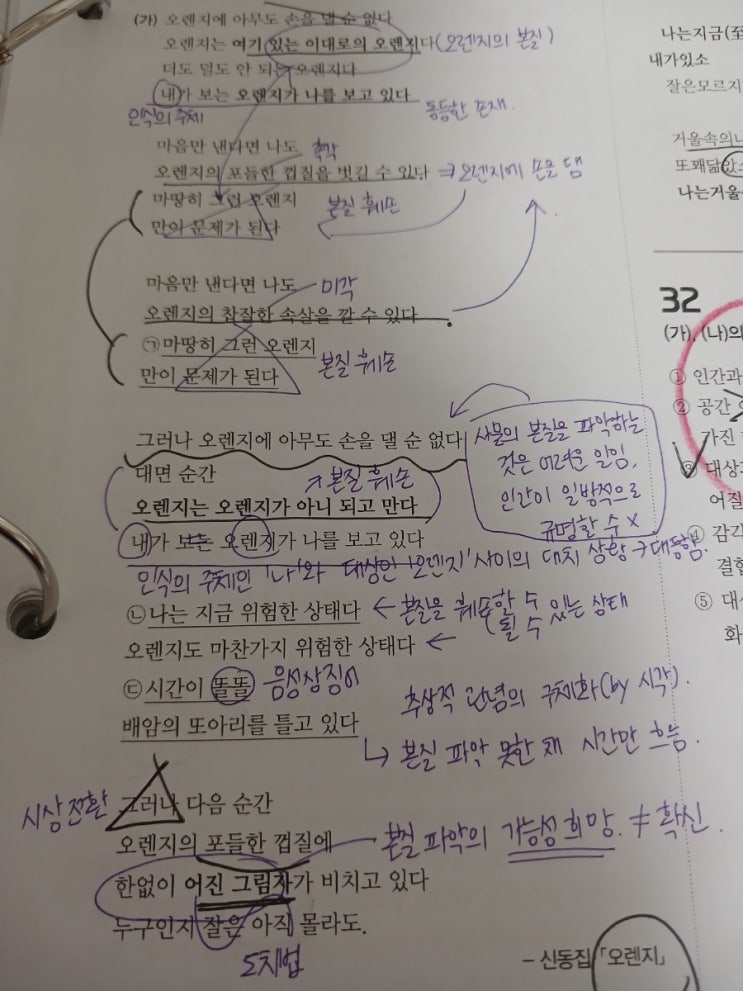 (가) 오렌지에 아무도 손을 댈 순 없다
오렌지는 여기 있는 이대로의 오렌지다 (오렌지의 본질)
더도 덜도 안 되는 오렌지다
내가 보는 오렌지가 나를 보고 있다
인식의 주체 동등한 존재.
마음만 낸다면 나도 촉각
오렌지의 포들한 껍질을 벗길 수 있다 ⇒ 오렌지에 손을 댐
마땅히 그런 오렌지 본질 훼손
만이 문제가 된다
마음만 낸다면 나도 미각
오렌지의 찹잘한 속살을 깔 수 있다
㉠ 마땅히 그런 오렌지
만이 문제가 된다 본질 훼손
그러나 오렌지에 아무도 손을 댈 순 없다
사물의 본질을 파악하는
것은 어려운 일임.
인간이 일방적으로
규명할 수 X
대면 순간 ↗ 본질 훼손
오렌지는 오렌지가 아니 되고 만다
내가 보는 오렌지가 나를 보고 있다
인식의 주체인 '나'와 대상인 '오렌지' 사이의 대치 상황 → 대등함.
㉡ 나는 지금 위험한 상태다 ← 본질을 훼손할 수 있는 상태
될 수
오렌지도 마찬가지 위험한 상태다 ←
㉢ 시간이 똘똘 음성상징어
배암의 또아리를 틀고 있다
추상적 관념의 구체화(by 시각).
↳ 본질 파악 못한 채 시간만 흐름.
시상 전환 그러나 다음 순간
오렌지의 포들한 껍질에
본질 파악의 가능성 희망. ≠ 확신.
한없이 어진 그림자가 비치고 있다
누구인지 잘은 아직 몰라도.
도치법
- 신동집 「오렌지」
나는지금(至
내가있소
잘은모르지
거울속의나
또꽤닮았소
나는거울
32
(가), (나)의
① 인간과
② 공간
가진
③ 대상
어질
④ 감각
결합
⑤ 대상
화